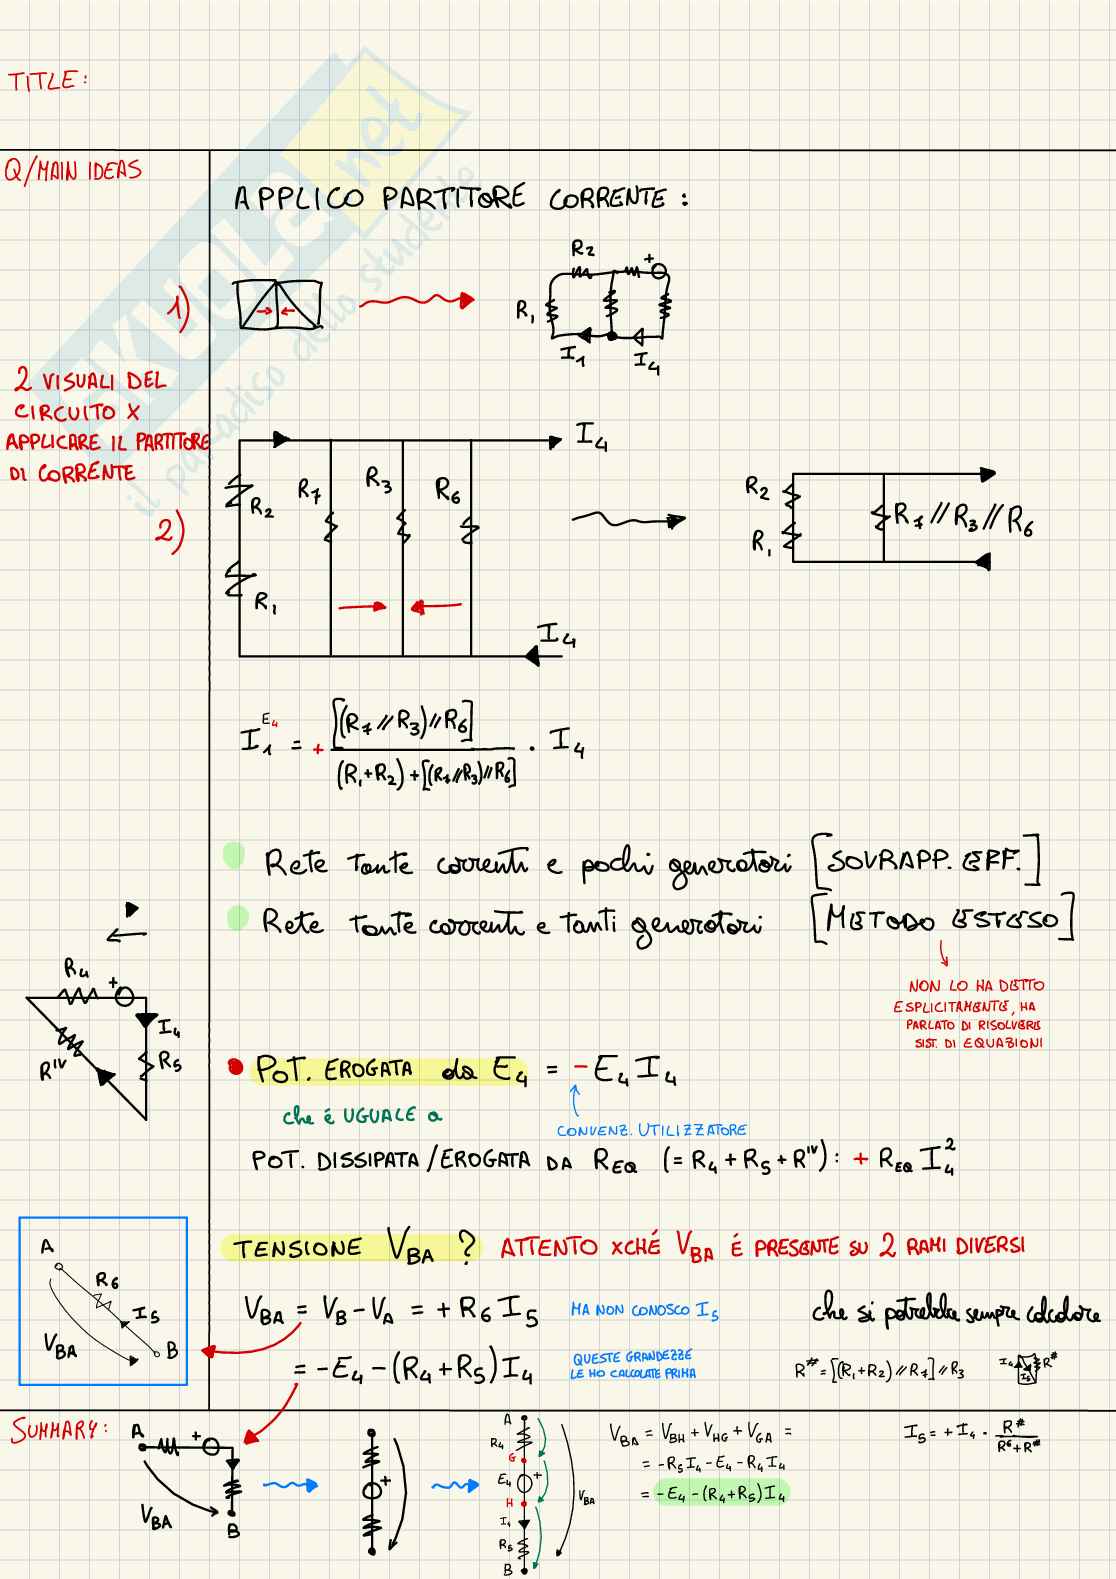 TITLE:
Q/MAIN IDEAS
SKUOLA.net
il paradiso dello studente
APPLICO PARTITORE CORRENTE :
1)
R2
+
R1
I1
I4
2 VISUALI DEL
CIRCUITO X
APPLICARE IL PARTITORE
DI CORRENTE
2)
I4
R2
R7
R3
R6
R1
I4
R2
R1
R7 // R3 // R6
I1^E4 = + [(R7 // R3) // R6] / (R1+R2) + [(R7//R3)//R6] · I4
Rete tante correnti e pochi generatori [SOVRAPP. EFF.]
Rete tante correnti e tanti generatori [METODO ESTESO]
NON LO HA DETTO
ESPLICITAMENTE, HA
PARLATO DI RISOLVERE
SIST. DI EQUAZIONI
R4
+
I4
R5
R^IV
POT. EROGATA da E4 = - E4 I4
che é UGUALE a
CONVENZ. UTILIZZATORE
POT. DISSIPATA/EROGATA DA REQ (= R4 + R5 + R^IV) : + REQ I4²
TENSIONE VBA ? ATTENTO XCHÉ VBA É PRESENTE SU 2 RAMI DIVERSI
A
R6
I5
VBA
B
VBA = VB - VA = + R6 I5 MA NON CONOSCO I5 che si potrebbe sempre calcolare
= -E4 - (R4+R5) I4
QUESTE GRANDEZZE
LE HO CALCOLATE PRIMA
R# = [(R1+R2) // R7] // R3
I4
I5
R#
SUMMARY:
A
+
VBA
B
+
A
R4
G
E4
+
H
I4
R5
B
VBA
VBA = VBH + VHG + VGA =
= -R5 I4 - E4 - R4 I4
= -E4 - (R4+R5) I4
I5 = + I4 · R# / R6+R#